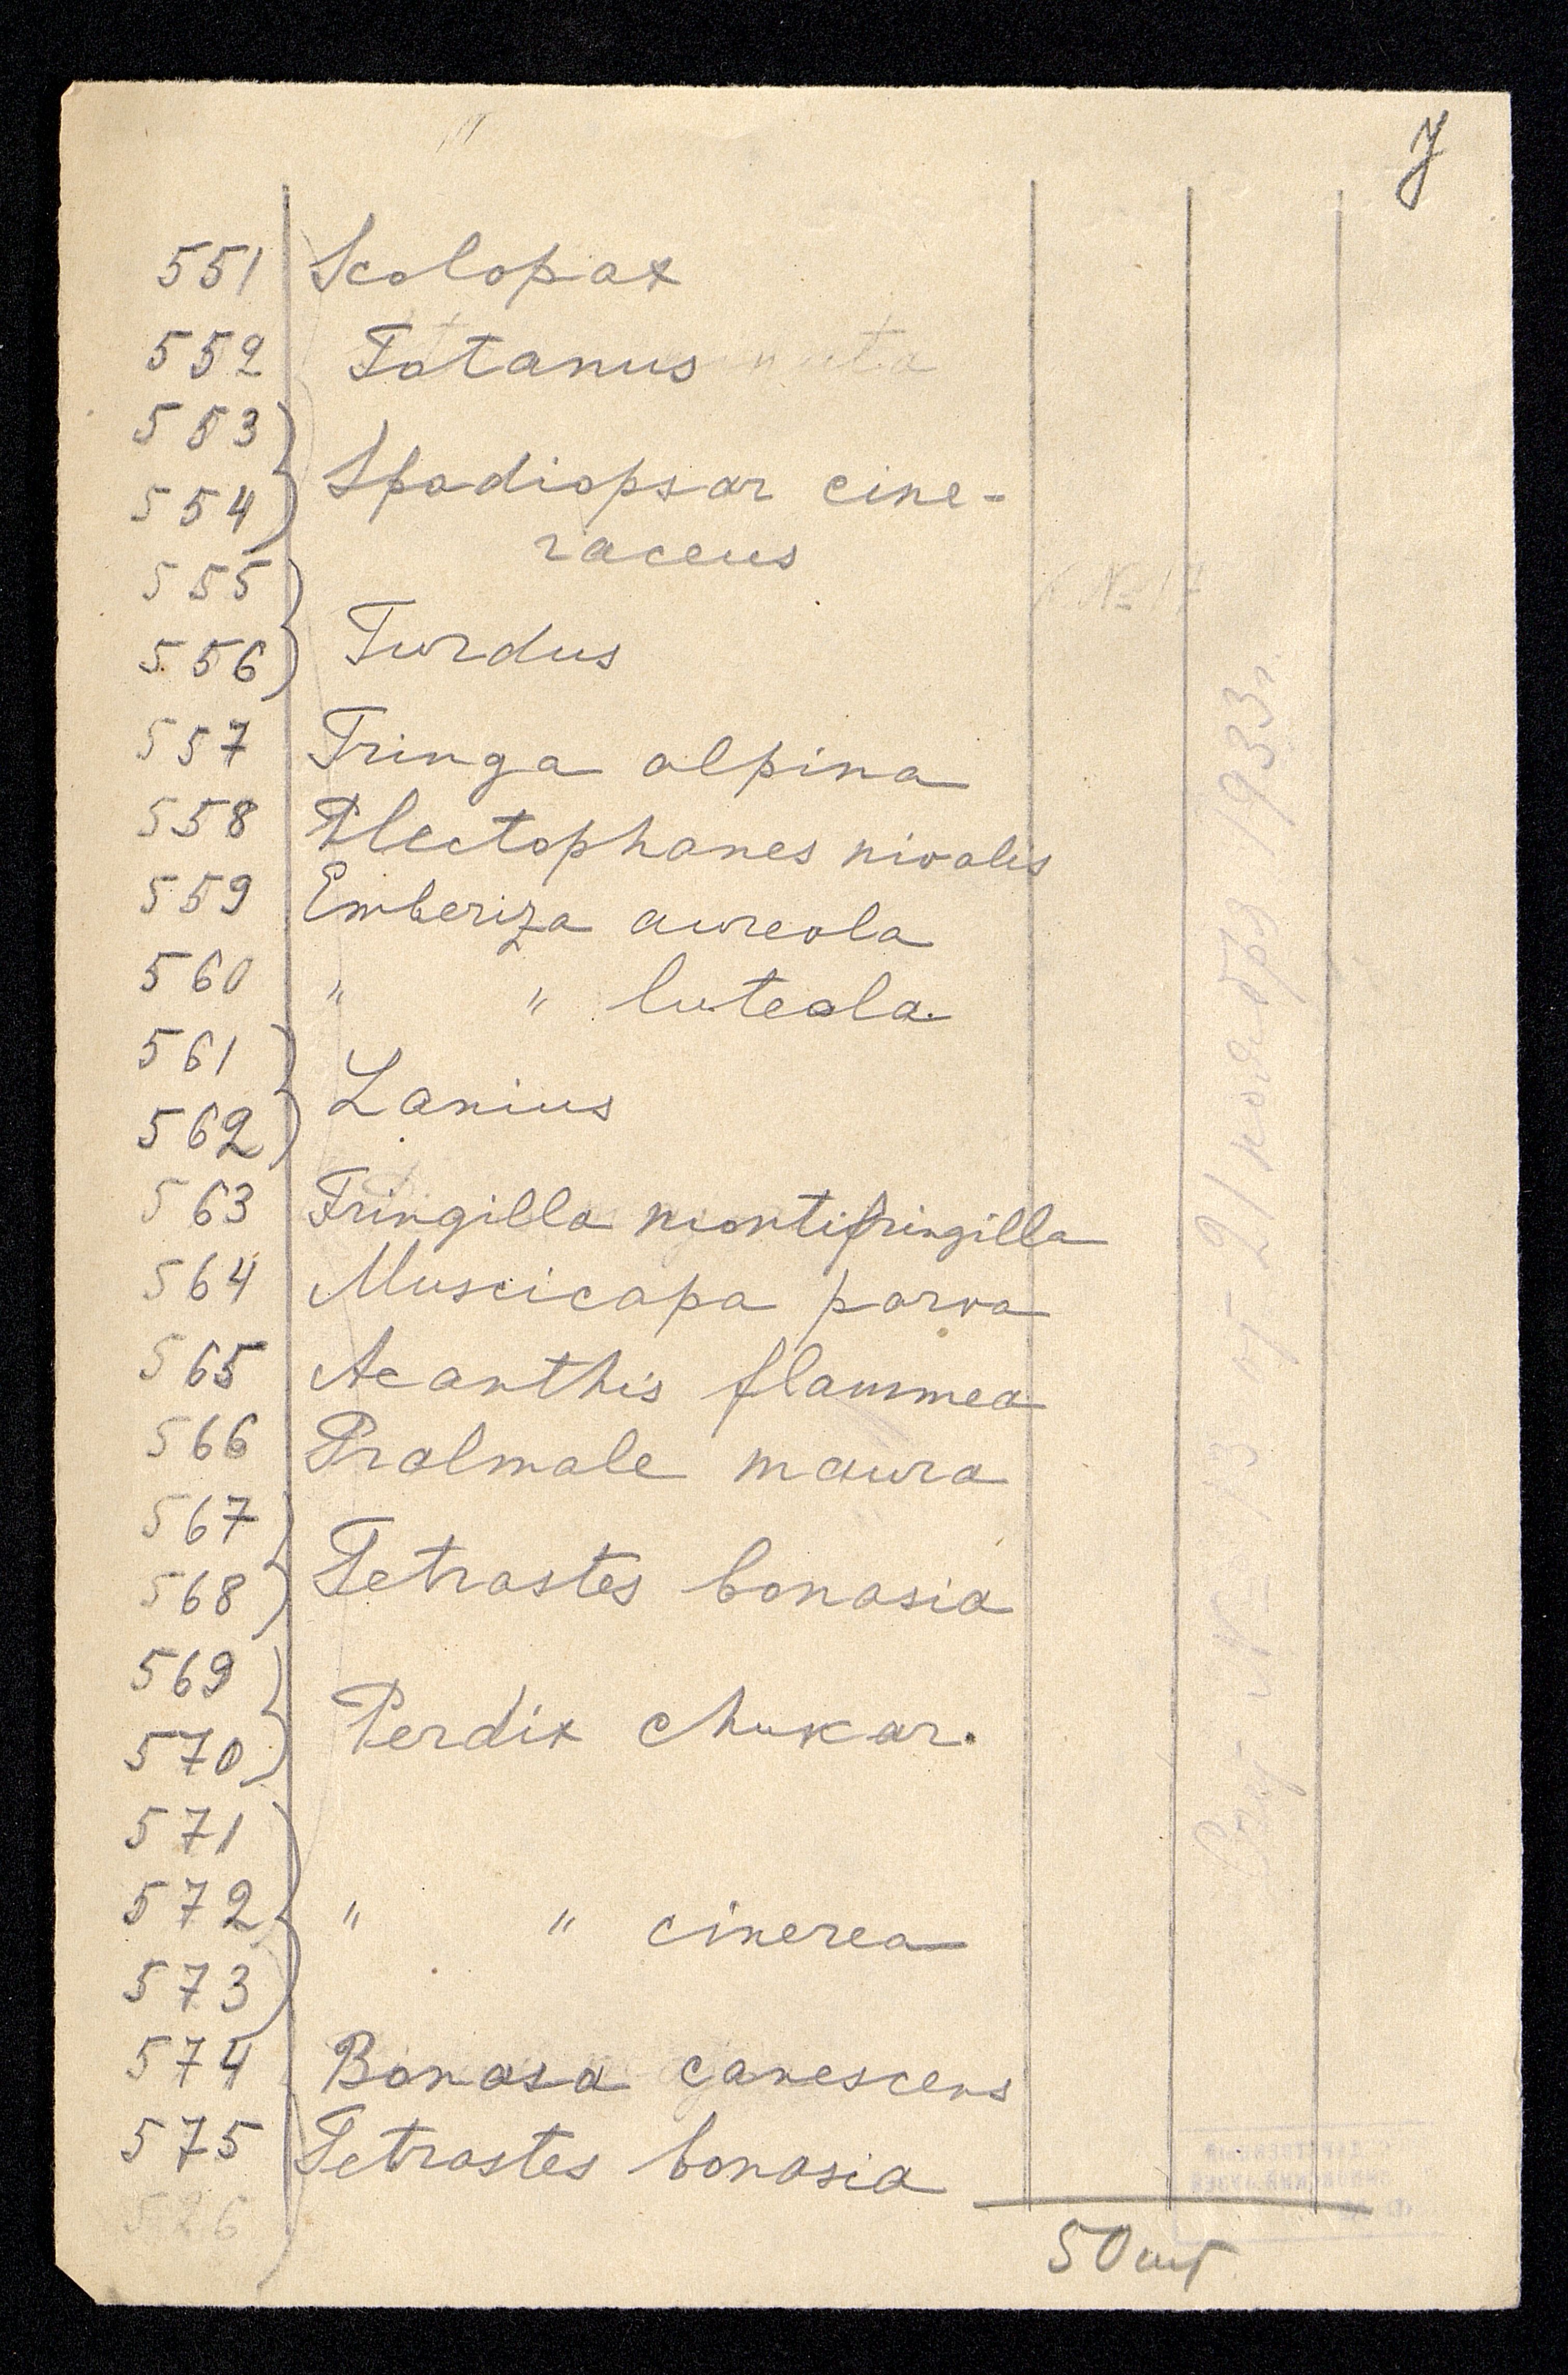 7
551 Scolopax
552 Totanus
553
554 Spodiopsar cine-
raceus
555
№ 17
556 Turdus
557 Tringa alpina
558 Plectophanes nivalis
559 Emberiza aureola
560 " " luteola
561
562 Lanius
563 Fringilla montifringilla
564 Muscicapa parva
565 Acanthis flammea
566 Pralmale maura
567
568 Tetrastes bonasia
569
570 Perdix chukar.
571
572 " " cinerea
573
574 Bonasa canescens
575 Tetrastes bonasia
576
50 шт
№ 13 от 21 ноября 1933г.